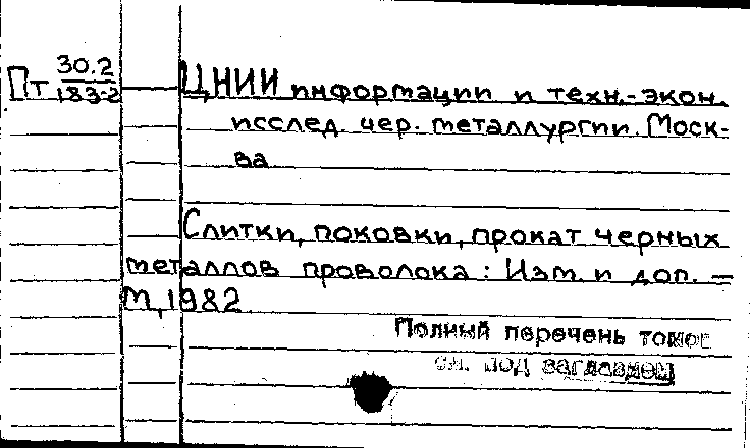 Пт 30.2
183-2
ЦНИИ информации и техн.-экон.
исслед. чер. металлургии. Моск-
ва
Слитки, поковки, прокат черных
металлов проволока: Изм. и доп. =
М, 1982
Полный перечень томов
см. под заглавием